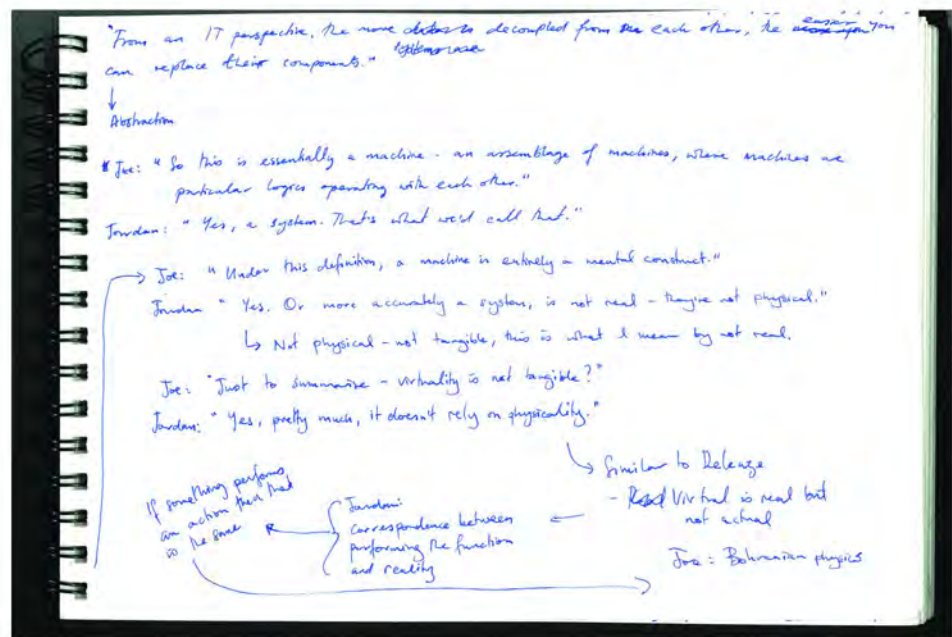 "From an IT perspective, the more decoupled from each other, the easier you
can replace their components."
Abstraction
Joe: "So this is essentially a machine - an assemblage of machines, where machines are
particular logics operating with each other."
Jordan: "Yes, a system. That's what we'd call that."
Joe: "Under this definition, a machine is entirely a mental construct."
Jordan "Yes. Or more accurately a system, is not real - they're not physical."
Not physical - not tangible, this is what I mean by not real.
Joe: "Just to summarise - virtuality is not tangible?"
Jordan: "Yes, pretty much, it doesn't rely on physicality."
Similar to Deleuze
- Virtual is real but
not actual
Joe: Bohmanian physics
Jordan:
correspondence between
performing the function
and reality
If something performs
an action then that
is the same